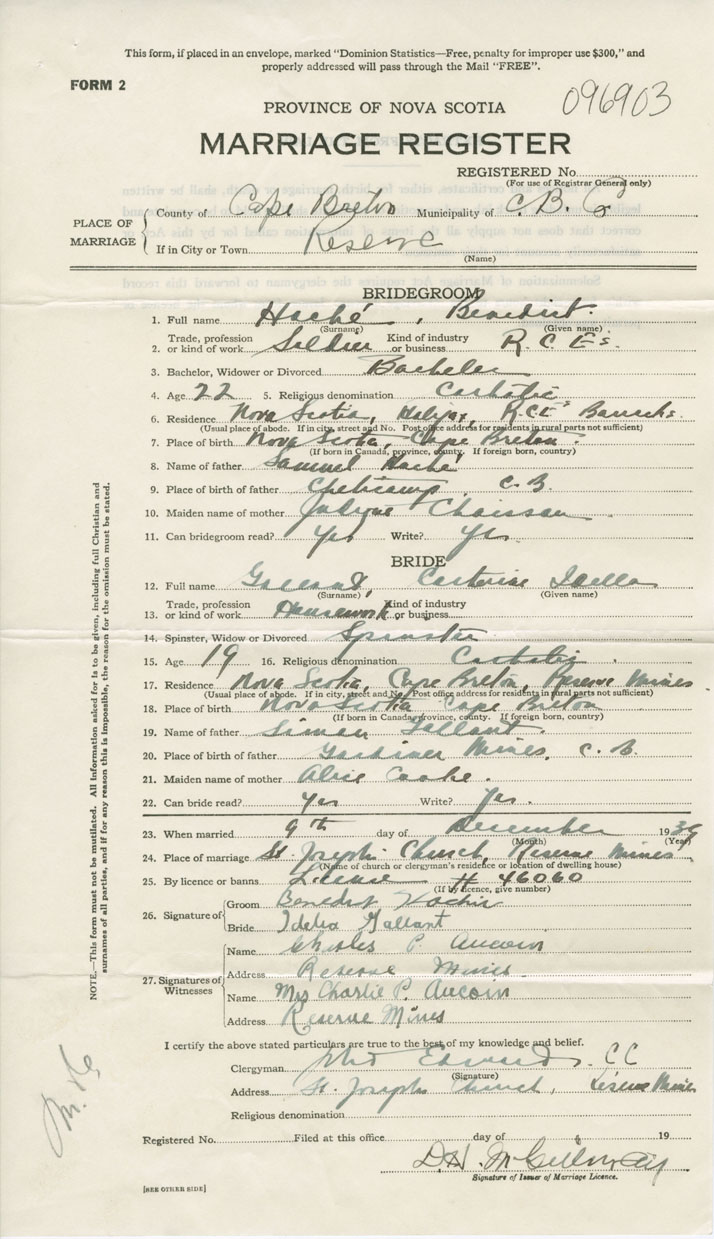 This form, if placed in an envelope, marked "Dominion Statistics—Free, penalty for improper use $300," and
properly addressed will pass through the Mail "FREE".
FORM 2
096903
PROVINCE OF NOVA SCOTIA
MARRIAGE REGISTER
REGISTERED No.
(For use of Registrar General only)
PLACE OF MARRIAGE
County of Cape Breton Municipality of C. B. Co
If in City or Town Reserve
(Name)
BRIDEGROOM
1. Full name Haché, Benedict
(Surname) (Given name)
2. Trade, profession or kind of work Soldier Kind of industry or business R. C. E's.
3. Bachelor, Widower or Divorced Bachelor
4. Age 22 5. Religious denomination Catholic
6. Residence Nova Scotia, Halifax, R.C.E's Barracks
(Usual place of abode. If in city, street and No. Post office address for residents in rural parts not sufficient)
7. Place of birth Nova Scotia, Cape Breton
(If born in Canada, province, county. If foreign born, country)
8. Name of father Samuel Haché
9. Place of birth of father Cheticamp, C. B.
10. Maiden name of mother Chaisson
11. Can bridegroom read? Yes Write? Yes
BRIDE
12. Full name Gallant, Catherine Idella
(Surname) (Given name)
13. Trade, profession or kind of work Housework Kind of industry or business
14. Spinster, Widow or Divorced Spinster
15. Age 19 16. Religious denomination Catholic
17. Residence Nova Scotia, Cape Breton, Reserve Mines
(Usual place of abode. If in city, street and No. Post office address for residents in rural parts not sufficient)
18. Place of birth Nova Scotia Cape Breton
(If born in Canada, province, county. If foreign born, country)
19. Name of father Simon Gallant
20. Place of birth of father Gardiner Mines, C. B.
21. Maiden name of mother Alice Cooke.
22. Can bride read? Yes Write? Yes.
23. When married 9th day of December 1939
(Month) (Year)
24. Place of marriage St. Joseph's Church, Reserve Mines
(Name of church or clergyman's residence or location of dwelling house)
25. By licence or banns License # 46060
(If by licence, give number)
26. Signature of
Groom Benedict Hachie
Bride Idella Gallant
27. Signatures of Witnesses
Name Charles P. Aucoin
Address Reserve Mines
Name Mrs Charlie P. Aucoin
Address Reserve Mines
I certify the above stated particulars are true to the best of my knowledge and belief.
Clergyman Edwards. CC
(Signature)
Address St. Josephs Church, Reserve Mines
Religious denomination
Registered No. Filed at this office day of 19
Signature of Issuer of Marriage Licence.
[SEE OTHER SIDE]
NOTE.—This form must not be mutilated. All information asked for is to be given, including full Christian and
surnames of all parties, and if for any reason this is impossible, the reason for the omission must be stated.